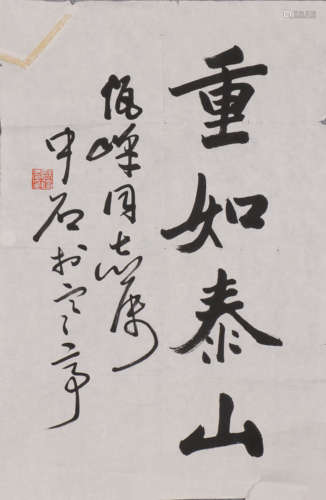 重如泰山
峰同志属
中石于京